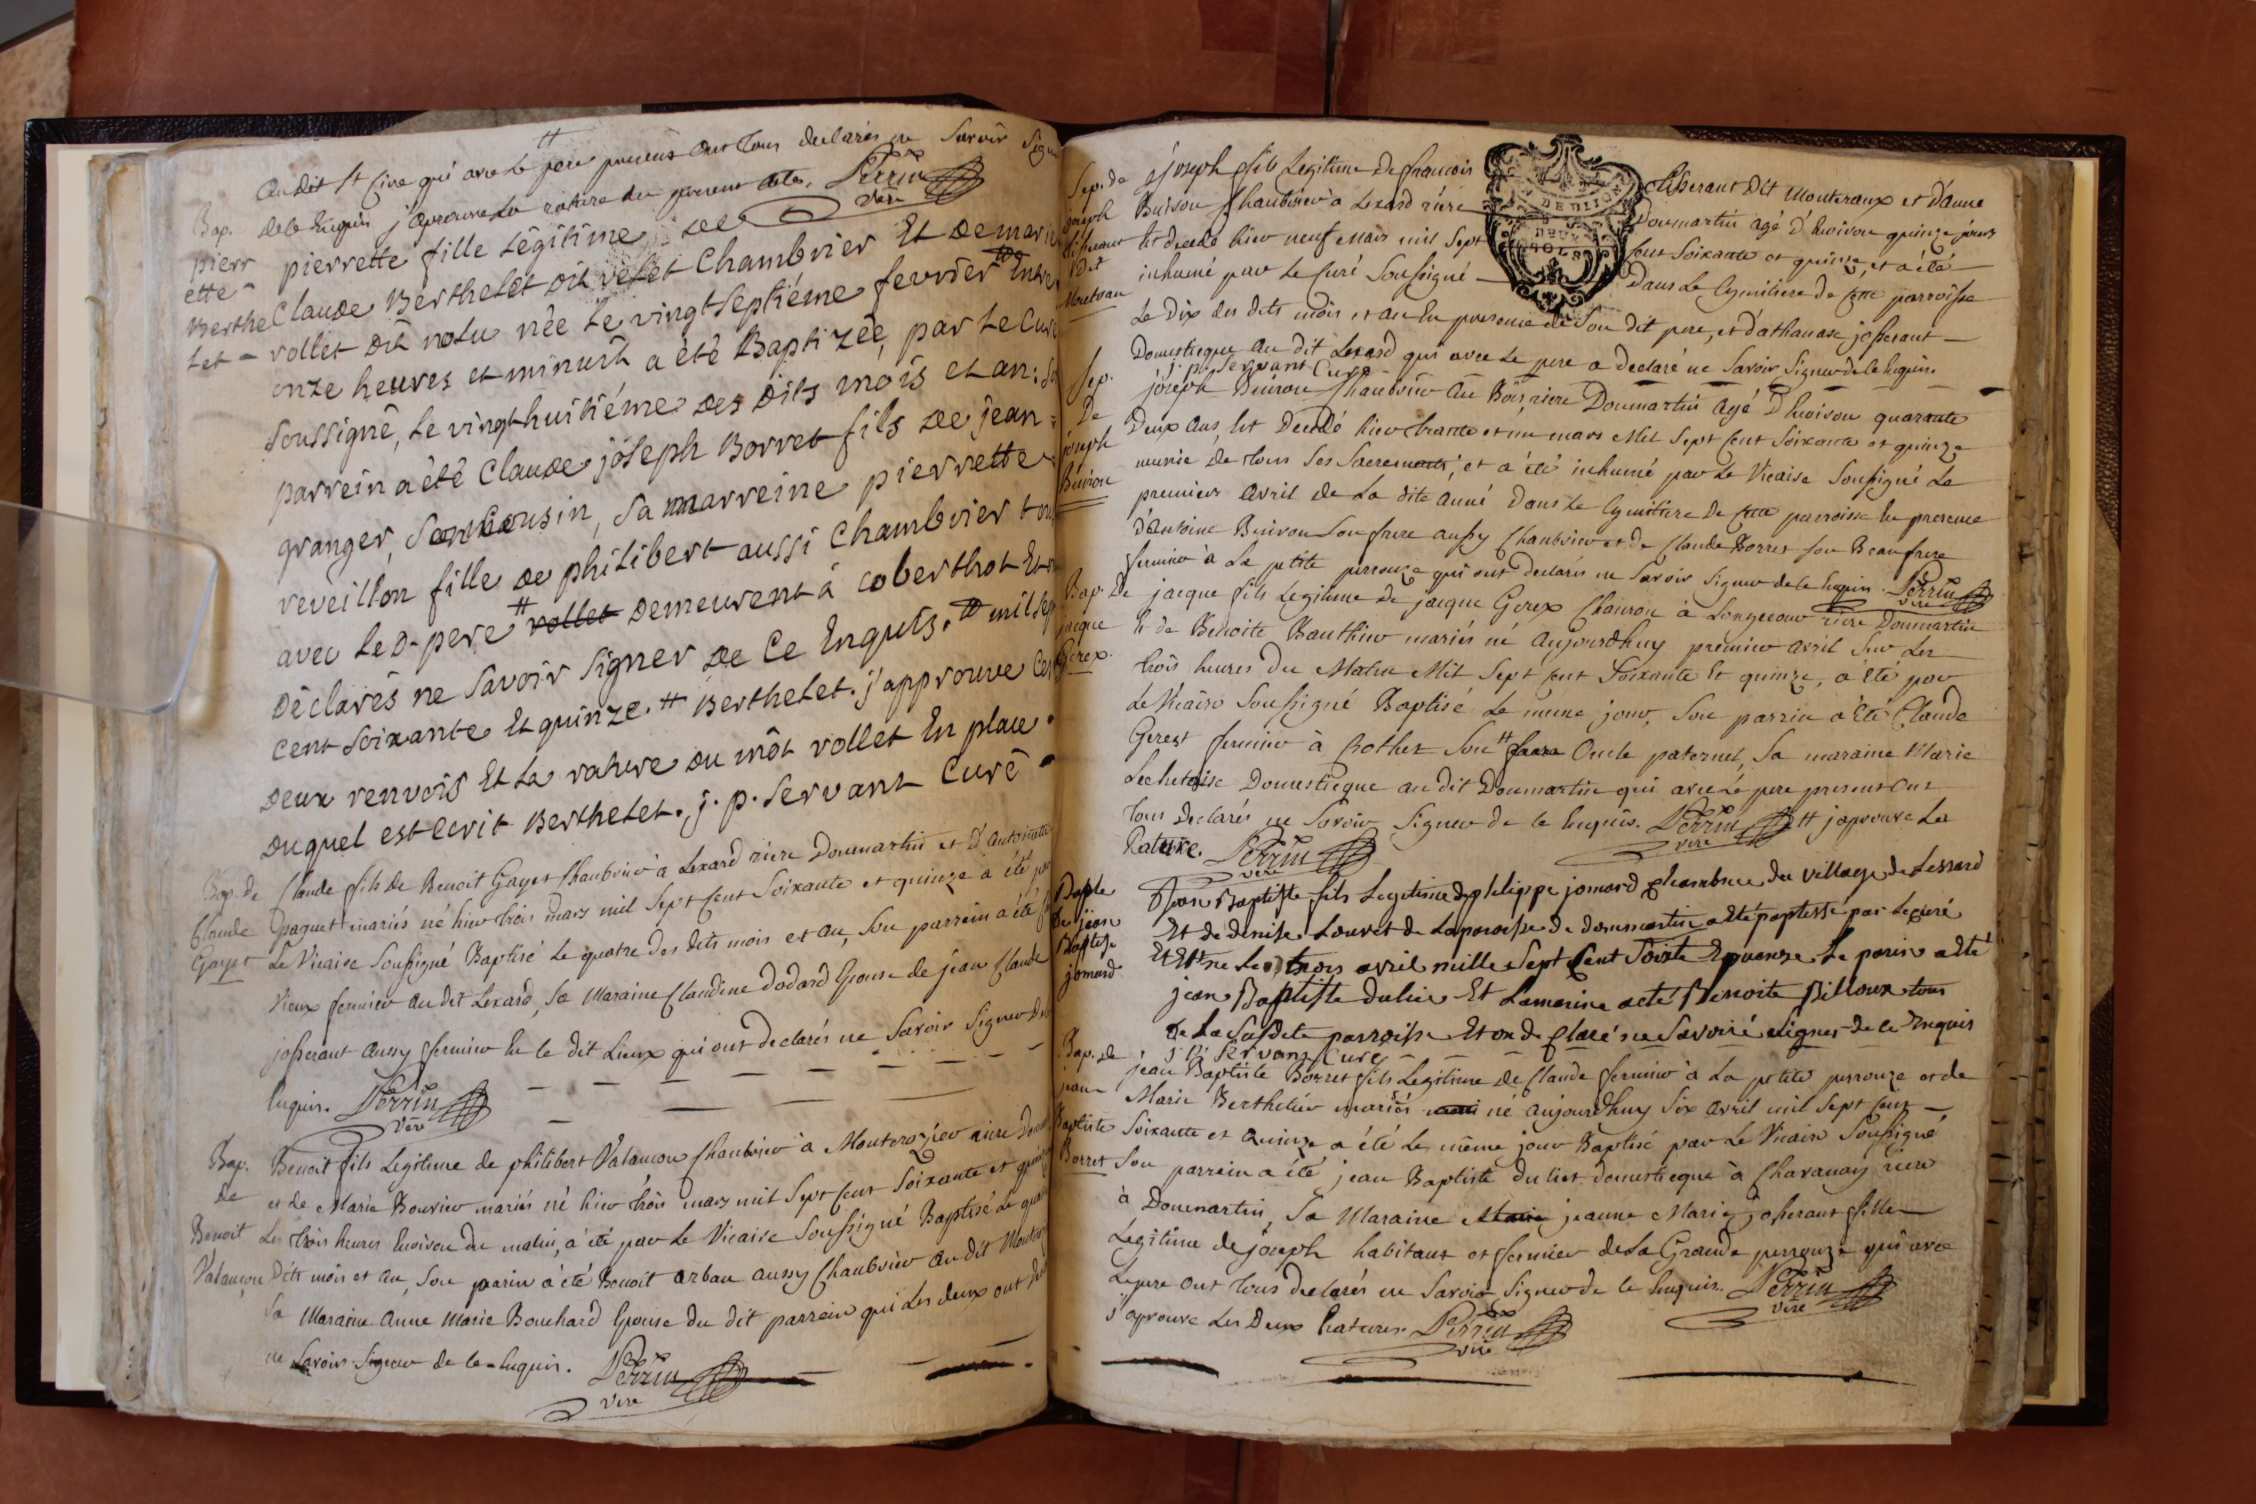 audit st Cire qui avec le pere presens ont tous declarés ne Savoir Signer
de ce Enquis j'aprouve la rature du present acte. Perrin
vire
Bap.
pierr
ette
Berthe
let
pierrette fille Légitime de
Claude Berthelet dit velet Chambrier Et de marie
vollet dit nolu née le vingt septiéme fevrier entre
onze heures et minuit a été Baptizée, par le Curé
soussigné, le vingt huitiéme des dits mois et an; son
parrein a été Claude joseph Borret fils de jean
granger, son Cousin, sa marreine pierrette
reveillon fille de philibert aussi Chambrier tous
avec le d. pere # vollet demeurent à Coberthot Et
Déclarés ne savoir signer de ce Enquis. mil sept
cent soixante Et quinze. # Berthelet. j'approuve Les
deux renvois Et La rature du môt vollet En place
duquel est Ecrit Berthelet. j. p. servant Curé
Bap. de
Claude
Gayet
Claude fils de Benoit Gayet Chambrier à Lexard riere Dommartin et d'antoinette
paquet mariés né hier trois mars mil Sept Cent Soixante et quinze a été par
Le Vicaire Soussigné Baptisé le quatre des dits mois et an, Son parrein a été
Vieux fermier au dit Lexard, Sa Maraine Claudine dodard Epouse de jean Claude
josserant aussy fermier En le dit Lieux qui ont declarés ne Savoir Signer De ce
Enquis. Perrin
vire
Bap.
de
Benoit
Valançon
Benoit fils Legitime de philibert Valançon Chambrier à Monterozier riere Dom
et de Marie Bouvier mariés né hier trois mars mil Sept Cent Soixante et quinze
Les trois heures Environ du matin, a été par Le Vicaire Soussigné Baptisé Le quatre
Dits mois et an, Son parin a été Benoit arban aussy Chambrier au dit Monter
Sa Maraine anne Marie Bouchard Epouse du dit parrein qui Les deux ont de
ne Savoir Signer de ce Enquis. Perrin
vire
Sep. de
joseph
josserant
dit
Montrau
joseph fils Legitime De francois josserant Dit Monteraux et D'anne
Buison Chambrier à Lexard riere Doumartin agé D'Environ quinze jours
Est decedé hier neuf mars mil Sept Cent Soixante et quinze, et a été
inhumé par Le Curé Soussigné Dans Le Cymitiere de Cette parroisse
Le dix des dits mois et an En presence de Son dit pere, et d'athanase josserant
Domestique au dit Lexard qui avec Le pere a declaré ne Savoir Signer de ce Enquis.
j. p. servant Curé
Sep.
De
joseph
Buiron
joseph Buiron Chambrier au Bois riere Doumartin agé D'Environ quarante
Deux ans, Est Decedé hier trante et un mars Mil Sept Cent Soixante et quinze
munie de tous Ses Sacrements; et a été inhumé par Le Vicaire Soussigné Le
premier avril de La dite anné Dans Le Cymitiere De Cette parroisse En presence
d'antoine Buiron Son frere aussy Chambrier et de Claude Borret Son Beaufrere
fermier à La petite perrouze qui ont declarés ne Savoir Signer de ce Enquis Perrin
vire
Bap. De
jacque
Gerex.
jacque fils Legitime de jacque Gerex Charron à Longecour riere Doumartin
Et de Benoite Bauthier mariés né aujourdhuy premier avril Sur Les
trois heures du Matin Mil Sept Cent Soixante Et quinze, a été par
Le Vicaire Soussigné Baptisé Le meme jour, Son parrin a Eté Claude
Gerest fermier à Bothez Son # Oncle paternel, Sa maraine Marie
Domestique au dit Doumartin qui avec Le pere present ont
tous Declarés ne Savoir Signer de ce Enquis. Perrin # japrouve La
vire
Rature. Perrin
vire
Bapte
de jean
Baptiste
jomard
Jean Baptiste fils Legetime de philippe jomard chambrier du village de Lessard
Et de denise Louvet de La paroisse de dommartin a Eté baptisté par Le curé
Et Est ne Le trois avril mille Sept Cent Soixte Equenze Le parin a Eté
jean Baptiste dulier Et La marine a eté Benoite Billoux tous
de La Susdite parroisse Et on declaré ne Savoiré Signer de ce Enquis
j. p. servant Curé
Bap. de
jean
Baptiste
Borret
jean Baptiste Borret fils Legitime de Claude fermier à La petite perrouze et de
Marie Berthelier mariés né aujourdhuy Six avril mil Sept Cent
Soixante et Quinze a été Le même jour Baptisé par Le Vicaire Soussigné
Son parrein a été jean Baptiste duliet domestique à Chavanay riere
à Doumartin, Sa Maraine Marie jeanne Marie josserant fille
Legitime de joseph habitant et fermier de La Grande perrouze qui avec
Le pere ont tous declarés ne Savoir Signer de ce Enquis. Perrin
vire
j'aprouve Les Deux Ratures Perrin
vire